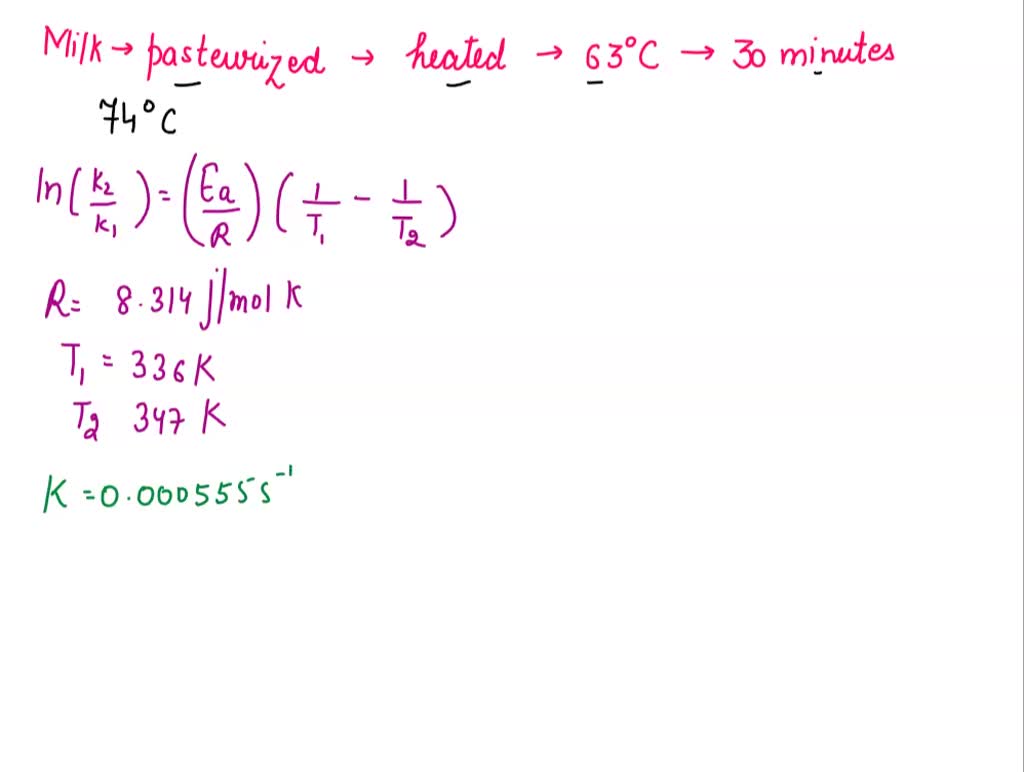 Milk → pasteurized → heated → 63°C → 30 minutes
74°C
ln(k2/k1) = (Ea/R)(1/T1 - 1/T2)
R= 8.314 j/mol K
T1 = 336K
T2 347 K
K =0.000555s⁻¹